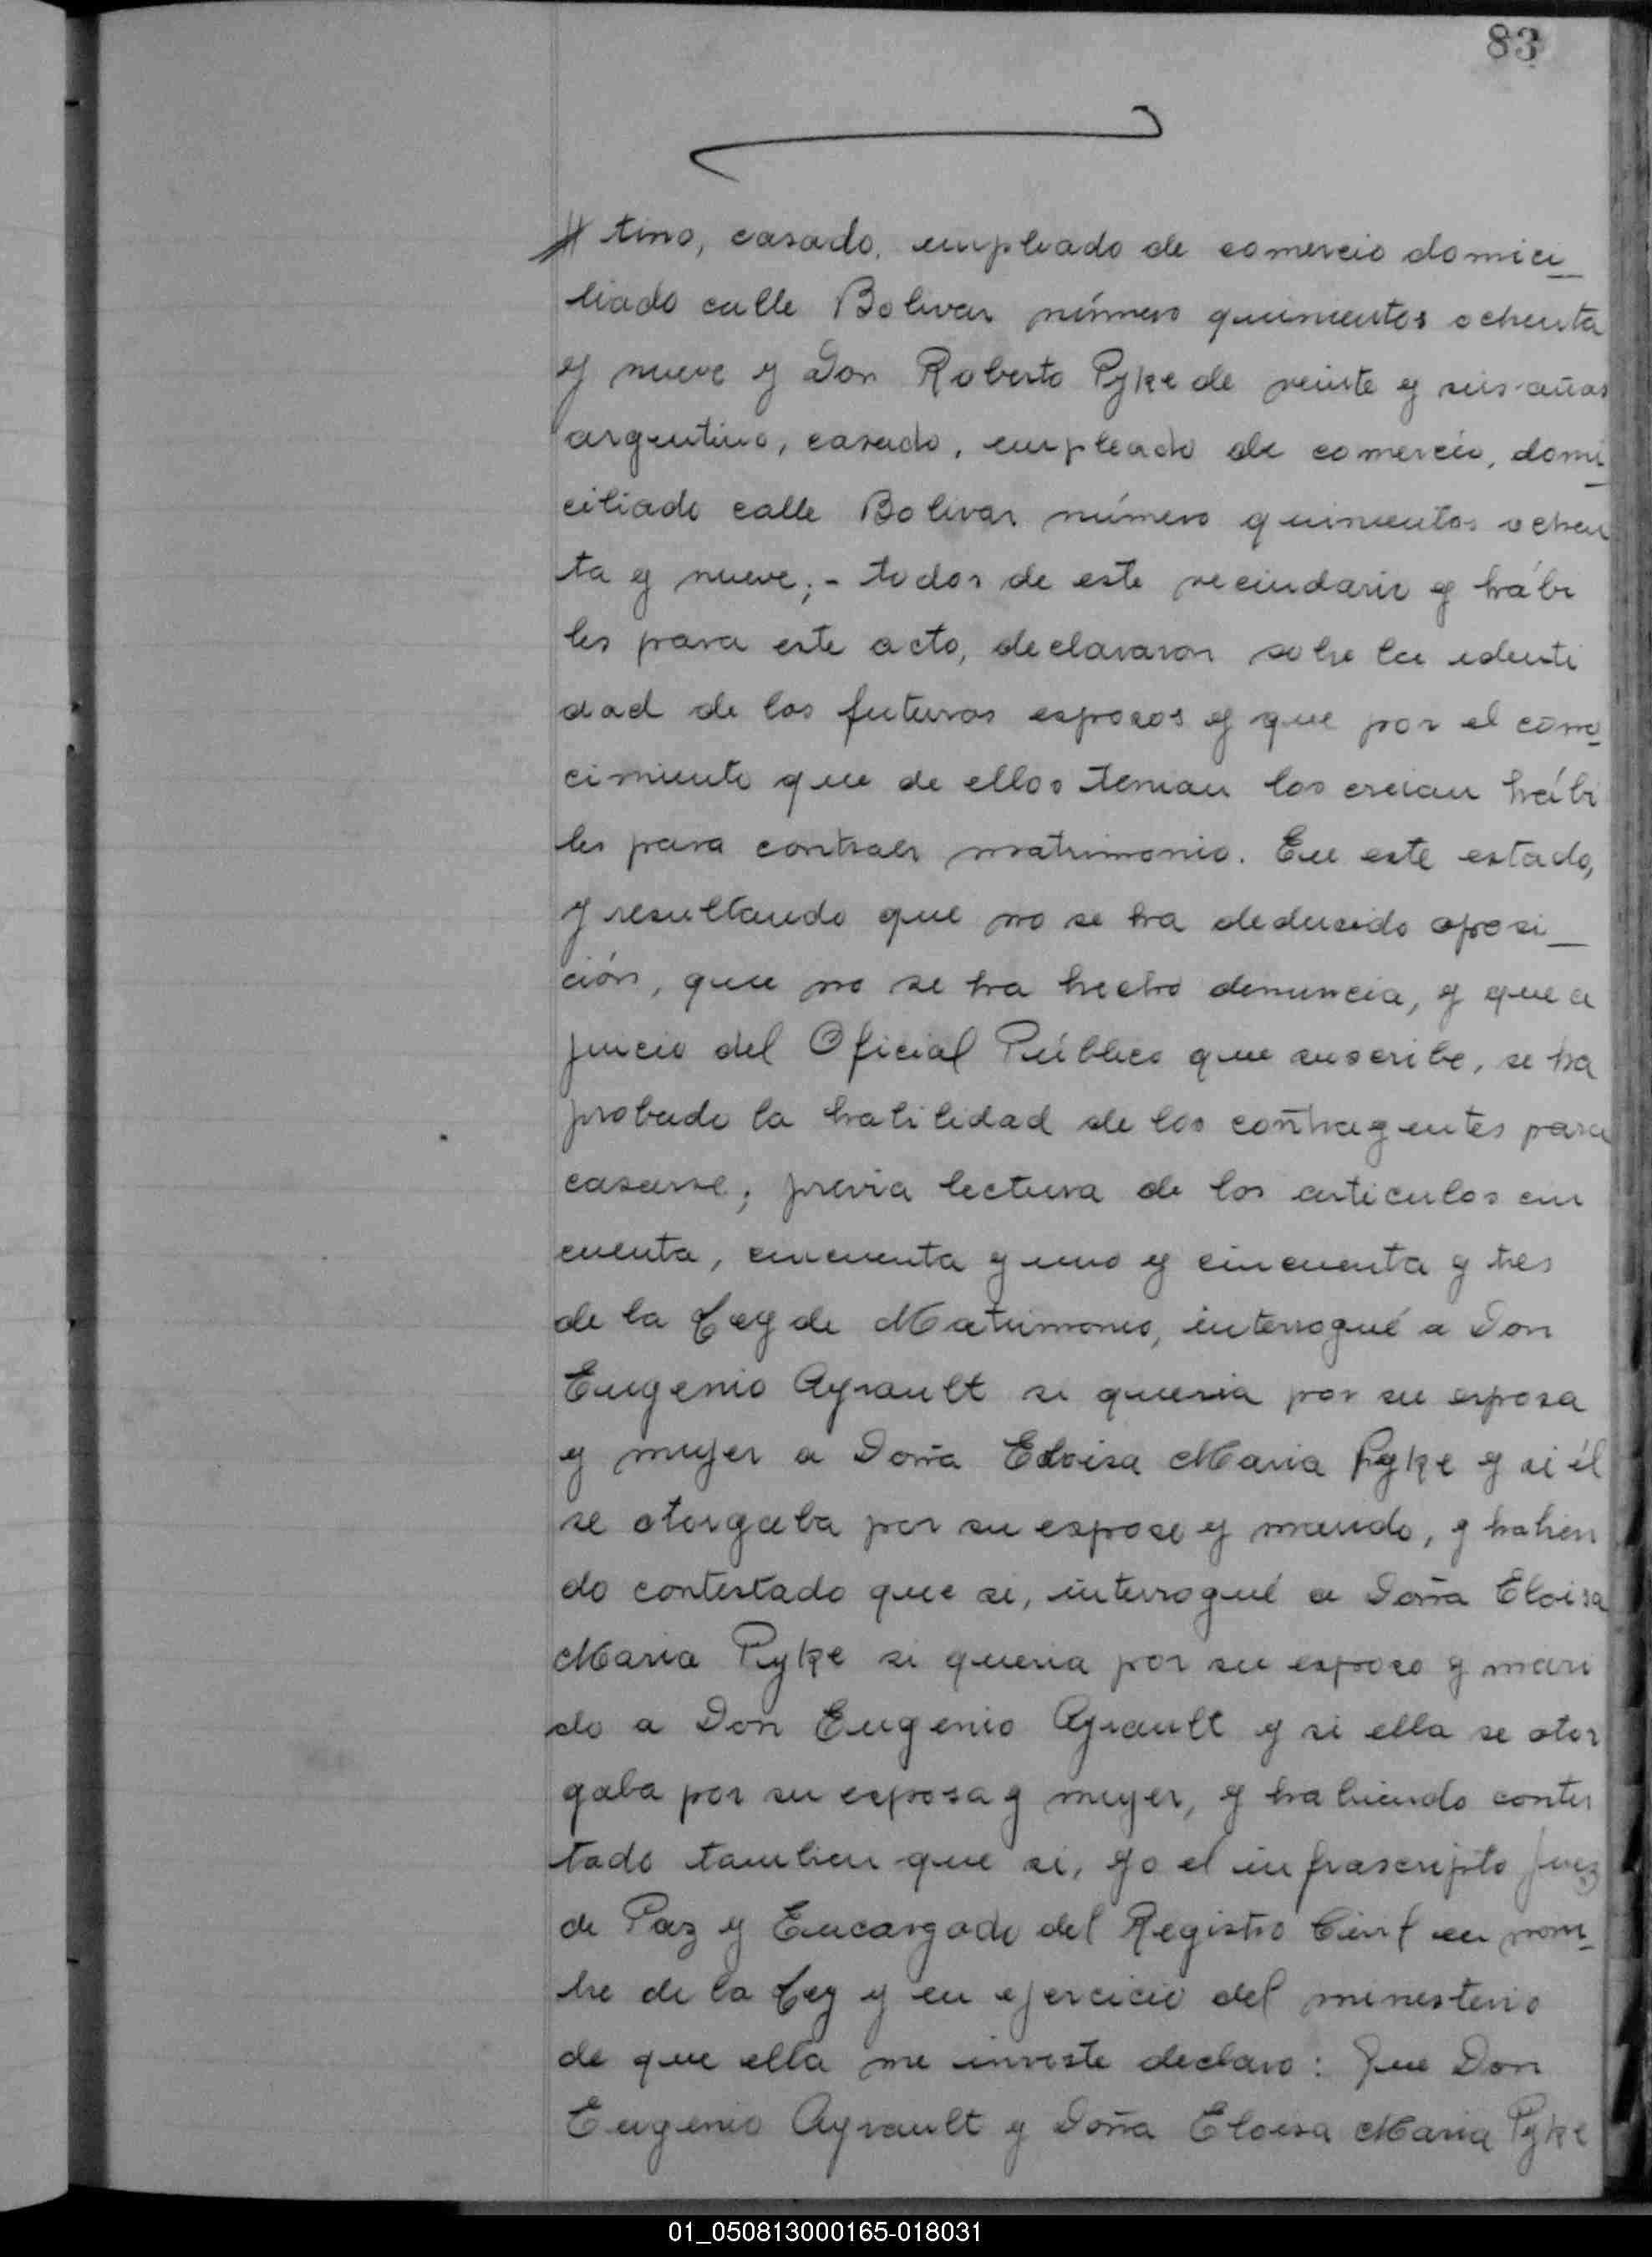 83
tino, casado, empleado de comercio domici_
liado calle Bolivar número quinientos ochenta
y nueve y Don Roberto Pyke de veinte y seis años
argentino, casado, empleado de comercio, domi_
ciliado calle Bolivar número quinientos ochen
ta y nueve; - todos de este vecindario y hábi
les para este acto, declararon sobre la identi
dad de los futuros esposos y que por el cono_
cimiento que de ellos tenian los creian hábi
les para contraer matrimonio. En este estado,
y resultando que no se ha deducido oposi_
ción, que no se ha hecho denuncia, y que a
juicio del Oficial Público que suscribe, se ha
probado la habilidad de los contrayentes para
casarse; previa lectura de los articulos cin
cuenta, cincuenta y uno y cincuenta y tres
de la Ley de Matrimonio, interrogué a Don
Eugenio Ayrault si queria por su esposa
y mujer a Doña Eloisa Maria Pyke y si él
se otorgaba por su esposo y marido, y habien
do contestado que si, interrogué a Doña Eloisa
Maria Pyke si queria por su esposo y mari
do a Don Eugenio Ayrault y si ella se otor
gaba por su esposa y mujer, y habiendo contes
tado tambien que si, yo el infrascripto Juez
de Paz y Encargado del Registro Civil en nom_
bre de la Ley y en ejercicio del ministerio
de que ella me inviste declaro: Que Don
Eugenio Ayrault y Doña Eloisa Maria Pyke
01_050813000165-018031